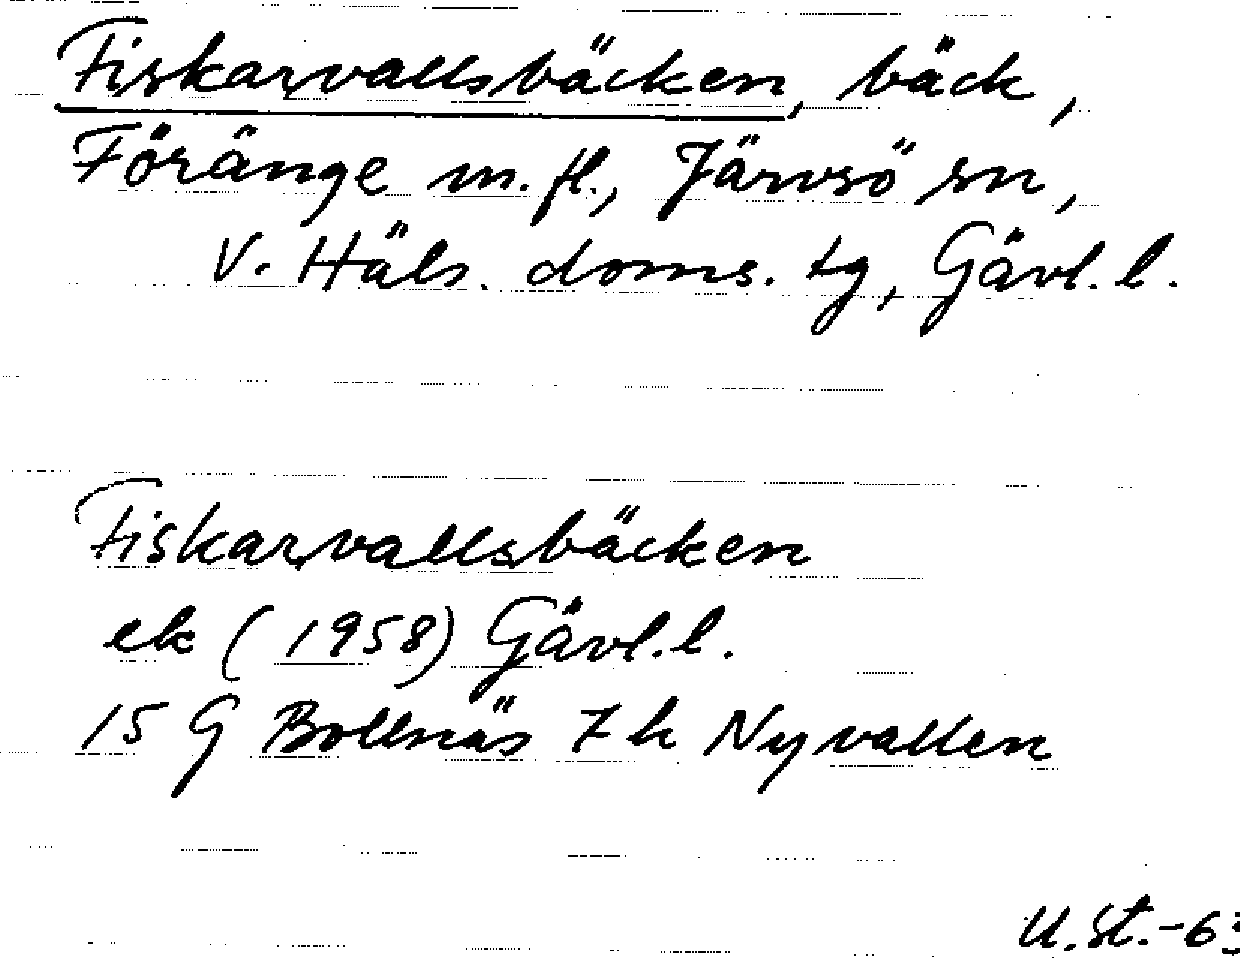 Fiskarvallsbäcken, bäck,
Föränge m.fl., Järvsö sn,
V. Häls. doms. tg, Gävl. l.
Fiskarvallsbäcken
ek (1958) Gävl. l.
15 G Bollnäs 7 h Nyvallen
U. St. -63